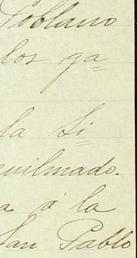 Poblano
los ga=
la Si=
quilmado.
a á la
San Pablo